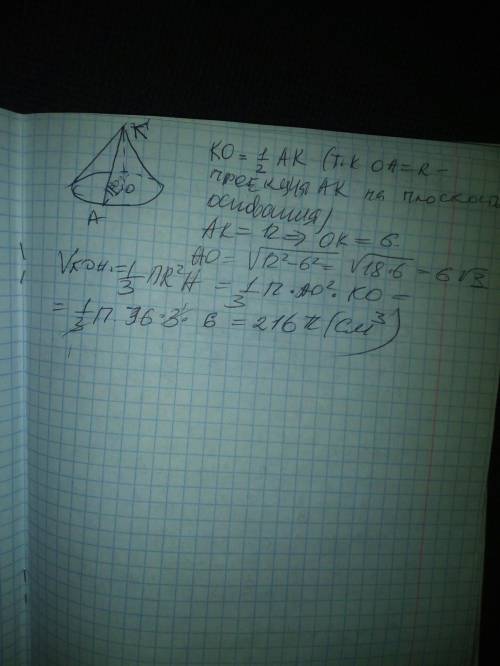 K
A
O
KO = 1/2 AK (т.к OA = R -
проекция AK на плоскость
основания)
AK = 12 => OK = 6
AO = √12²-6² = √18·6 = 6√3
Vкон. = 1/3 ПR²H = 1/3 П · AO² · KO =
= 1/3 П · 36 · 3 · 6 = 216π (см³)